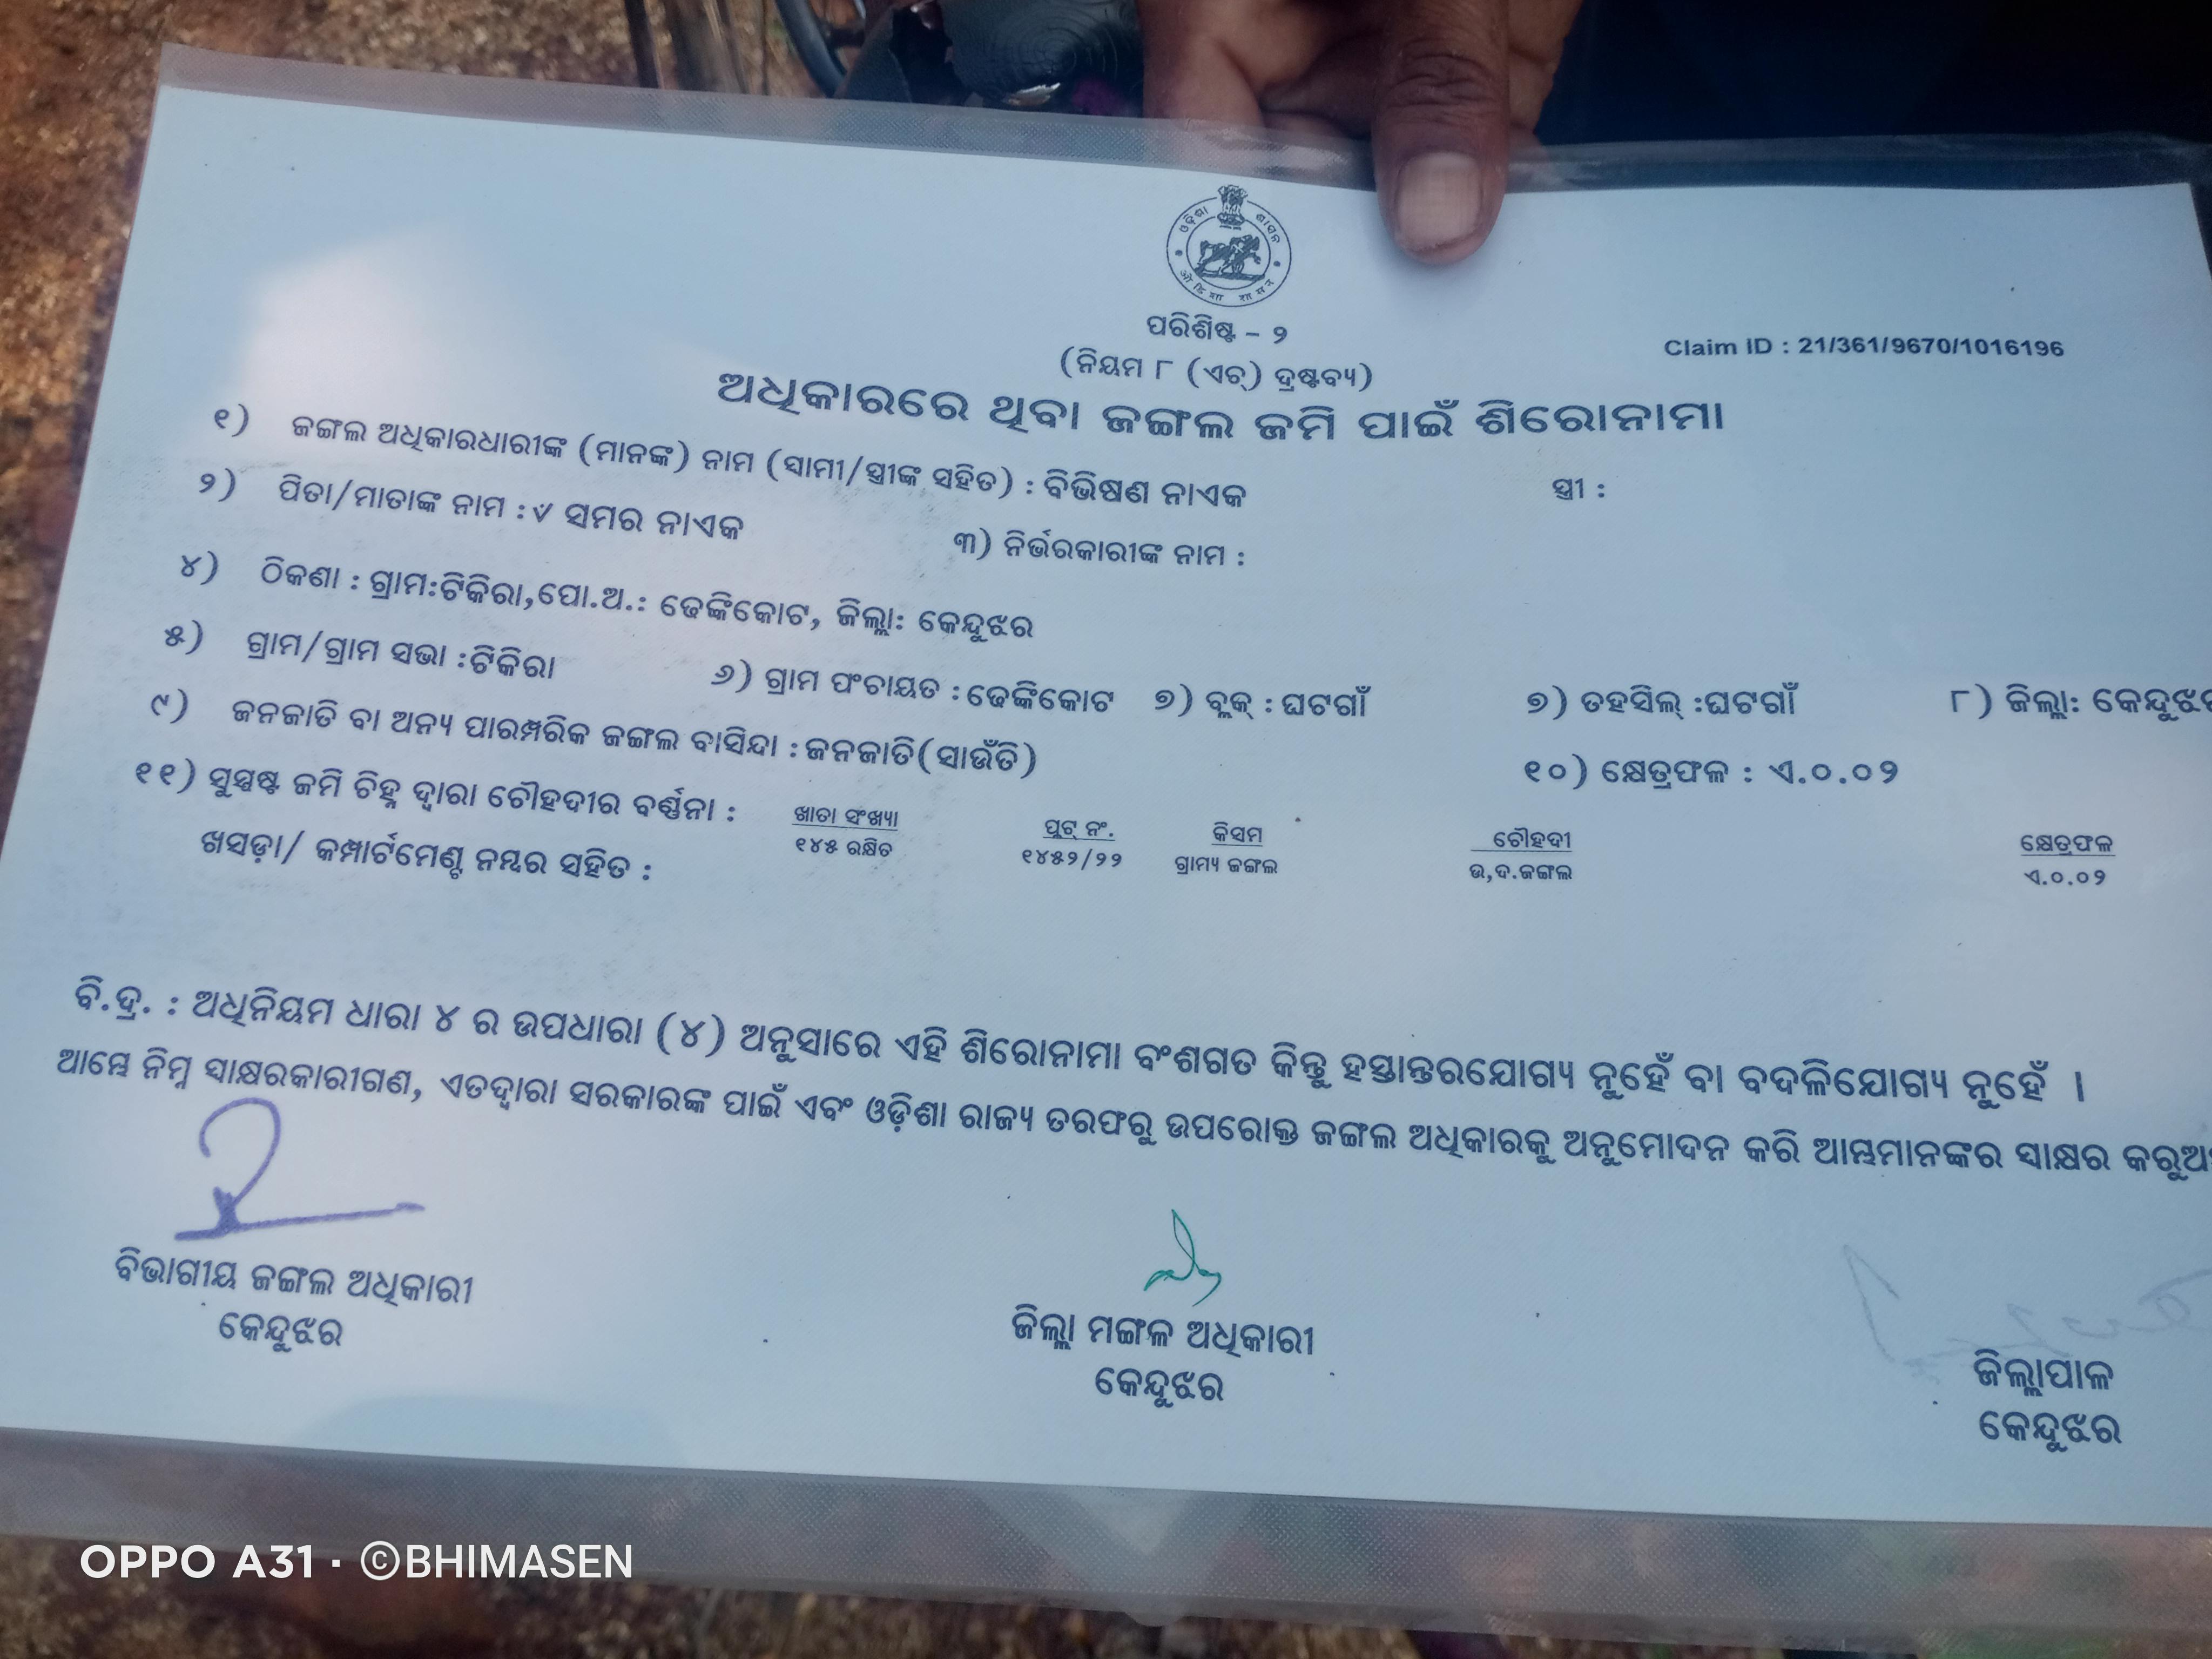 ଓଡ଼ିଶା ଶାସନ
ओडिशा शासन
ପରିଶିଷ୍ଟ - ୨
(ନିୟମ ୮ (ଏଚ୍) ଦ୍ରଷ୍ଟବ୍ୟ)
Claim ID : 21/361/9670/1016196
ଅଧିକାରରେ ଥିବା ଜଙ୍ଗଲ ଜମି ପାଇଁ ଶିରୋନାମା
୧) ଜଙ୍ଗଲ ଅଧିକାରଧାରୀଙ୍କ (ମାନଙ୍କ) ନାମ (ସ୍ୱାମୀ/ସ୍ତ୍ରୀଙ୍କ ସହିତ) : ବିଭିଷଣ ନାଏକ ସ୍ତ୍ରୀ :
୨) ପିତା/ମାତାଙ୍କ ନାମ : ସମର ନାଏକ ୩) ନିର୍ଭରକାରୀଙ୍କ ନାମ :
୪) ଠିକଣା : ଗ୍ରାମ:ଟିକିରା,ପୋ.ଅ.: ଢେଙ୍କିକୋଟ, ଜିଲ୍ଲା: କେନ୍ଦୁଝର
୫) ଗ୍ରାମ/ଗ୍ରାମ ସଭା :ଟିକିରା ୬) ଗ୍ରାମ ପଂଚାୟତ :ଢେଙ୍କିକୋଟ ୭) ବ୍ଲକ୍ : ଘଟଗାଁ ୭) ତହସିଲ୍ :ଘଟଗାଁ ୮) ଜିଲ୍ଲା: କେନ୍ଦୁଝର
୯) ଜନଜାତି ବା ଅନ୍ୟ ପାରମ୍ପରିକ ଜଙ୍ଗଲ ବାସିନ୍ଦା :ଜନଜାତି(ସାଉଁତି) ୧୦) କ୍ଷେତ୍ରଫଳ : ଏ.୦.୦୨
୧୧) ସୁସ୍ପଷ୍ଟ ଜମି ଚିହ୍ନ ଦ୍ୱାରା ଚୌହଦୀର ବର୍ଣ୍ଣନା : ଖାତା ସଂଖ୍ୟା ପ୍ଲଟ୍ ନଂ. କିସମ ଚୌହଦୀ କ୍ଷେତ୍ରଫଳ
ଖସଡ଼ା/ କମ୍ପାର୍ଟମେଣ୍ଟ ନମ୍ବର ସହିତ : ୧୪୫ ରକ୍ଷିତ ୧୪୫୨/୨୨ ଗ୍ରାମ୍ୟ ଜଙ୍ଗଲ ଉ,ଦ.ଜଙ୍ଗଲ ଏ.୦.୦୨
ବି.ଦ୍ର. : ଅଧିନିୟମ ଧାରା ୪ ର ଉପଧାରା (୪) ଅନୁସାରେ ଏହି ଶିରୋନାମା ବଂଶଗତ କିନ୍ତୁ ହସ୍ତାନ୍ତରଯୋଗ୍ୟ ନୁହେଁ ବା ବଦଳିଯୋଗ୍ୟ ନୁହେଁ ।
ଆମ୍ଭେ ନିମ୍ନ ସ୍ୱାକ୍ଷରକାରୀଗଣ, ଏତଦ୍ୱାରା ସରକାରଙ୍କ ପାଇଁ ଏବଂ ଓଡ଼ିଶା ରାଜ୍ୟ ତରଫରୁ ଉପରୋକ୍ତ ଜଙ୍ଗଲ ଅଧିକାରକୁ ଅନୁମୋଦନ କରି ଆମ୍ଭମାନଙ୍କର ସ୍ୱାକ୍ଷର
ବିଭାଗୀୟ ଜଙ୍ଗଲ ଅଧିକାରୀ
କେନ୍ଦୁଝର
ଜିଲ୍ଲା ମଙ୍ଗଳ ଅଧିକାରୀ
କେନ୍ଦୁଝର
ଜିଲ୍ଲାପାଳ
କେନ୍ଦୁଝର
OPPO A31 · ©BHIMASEN